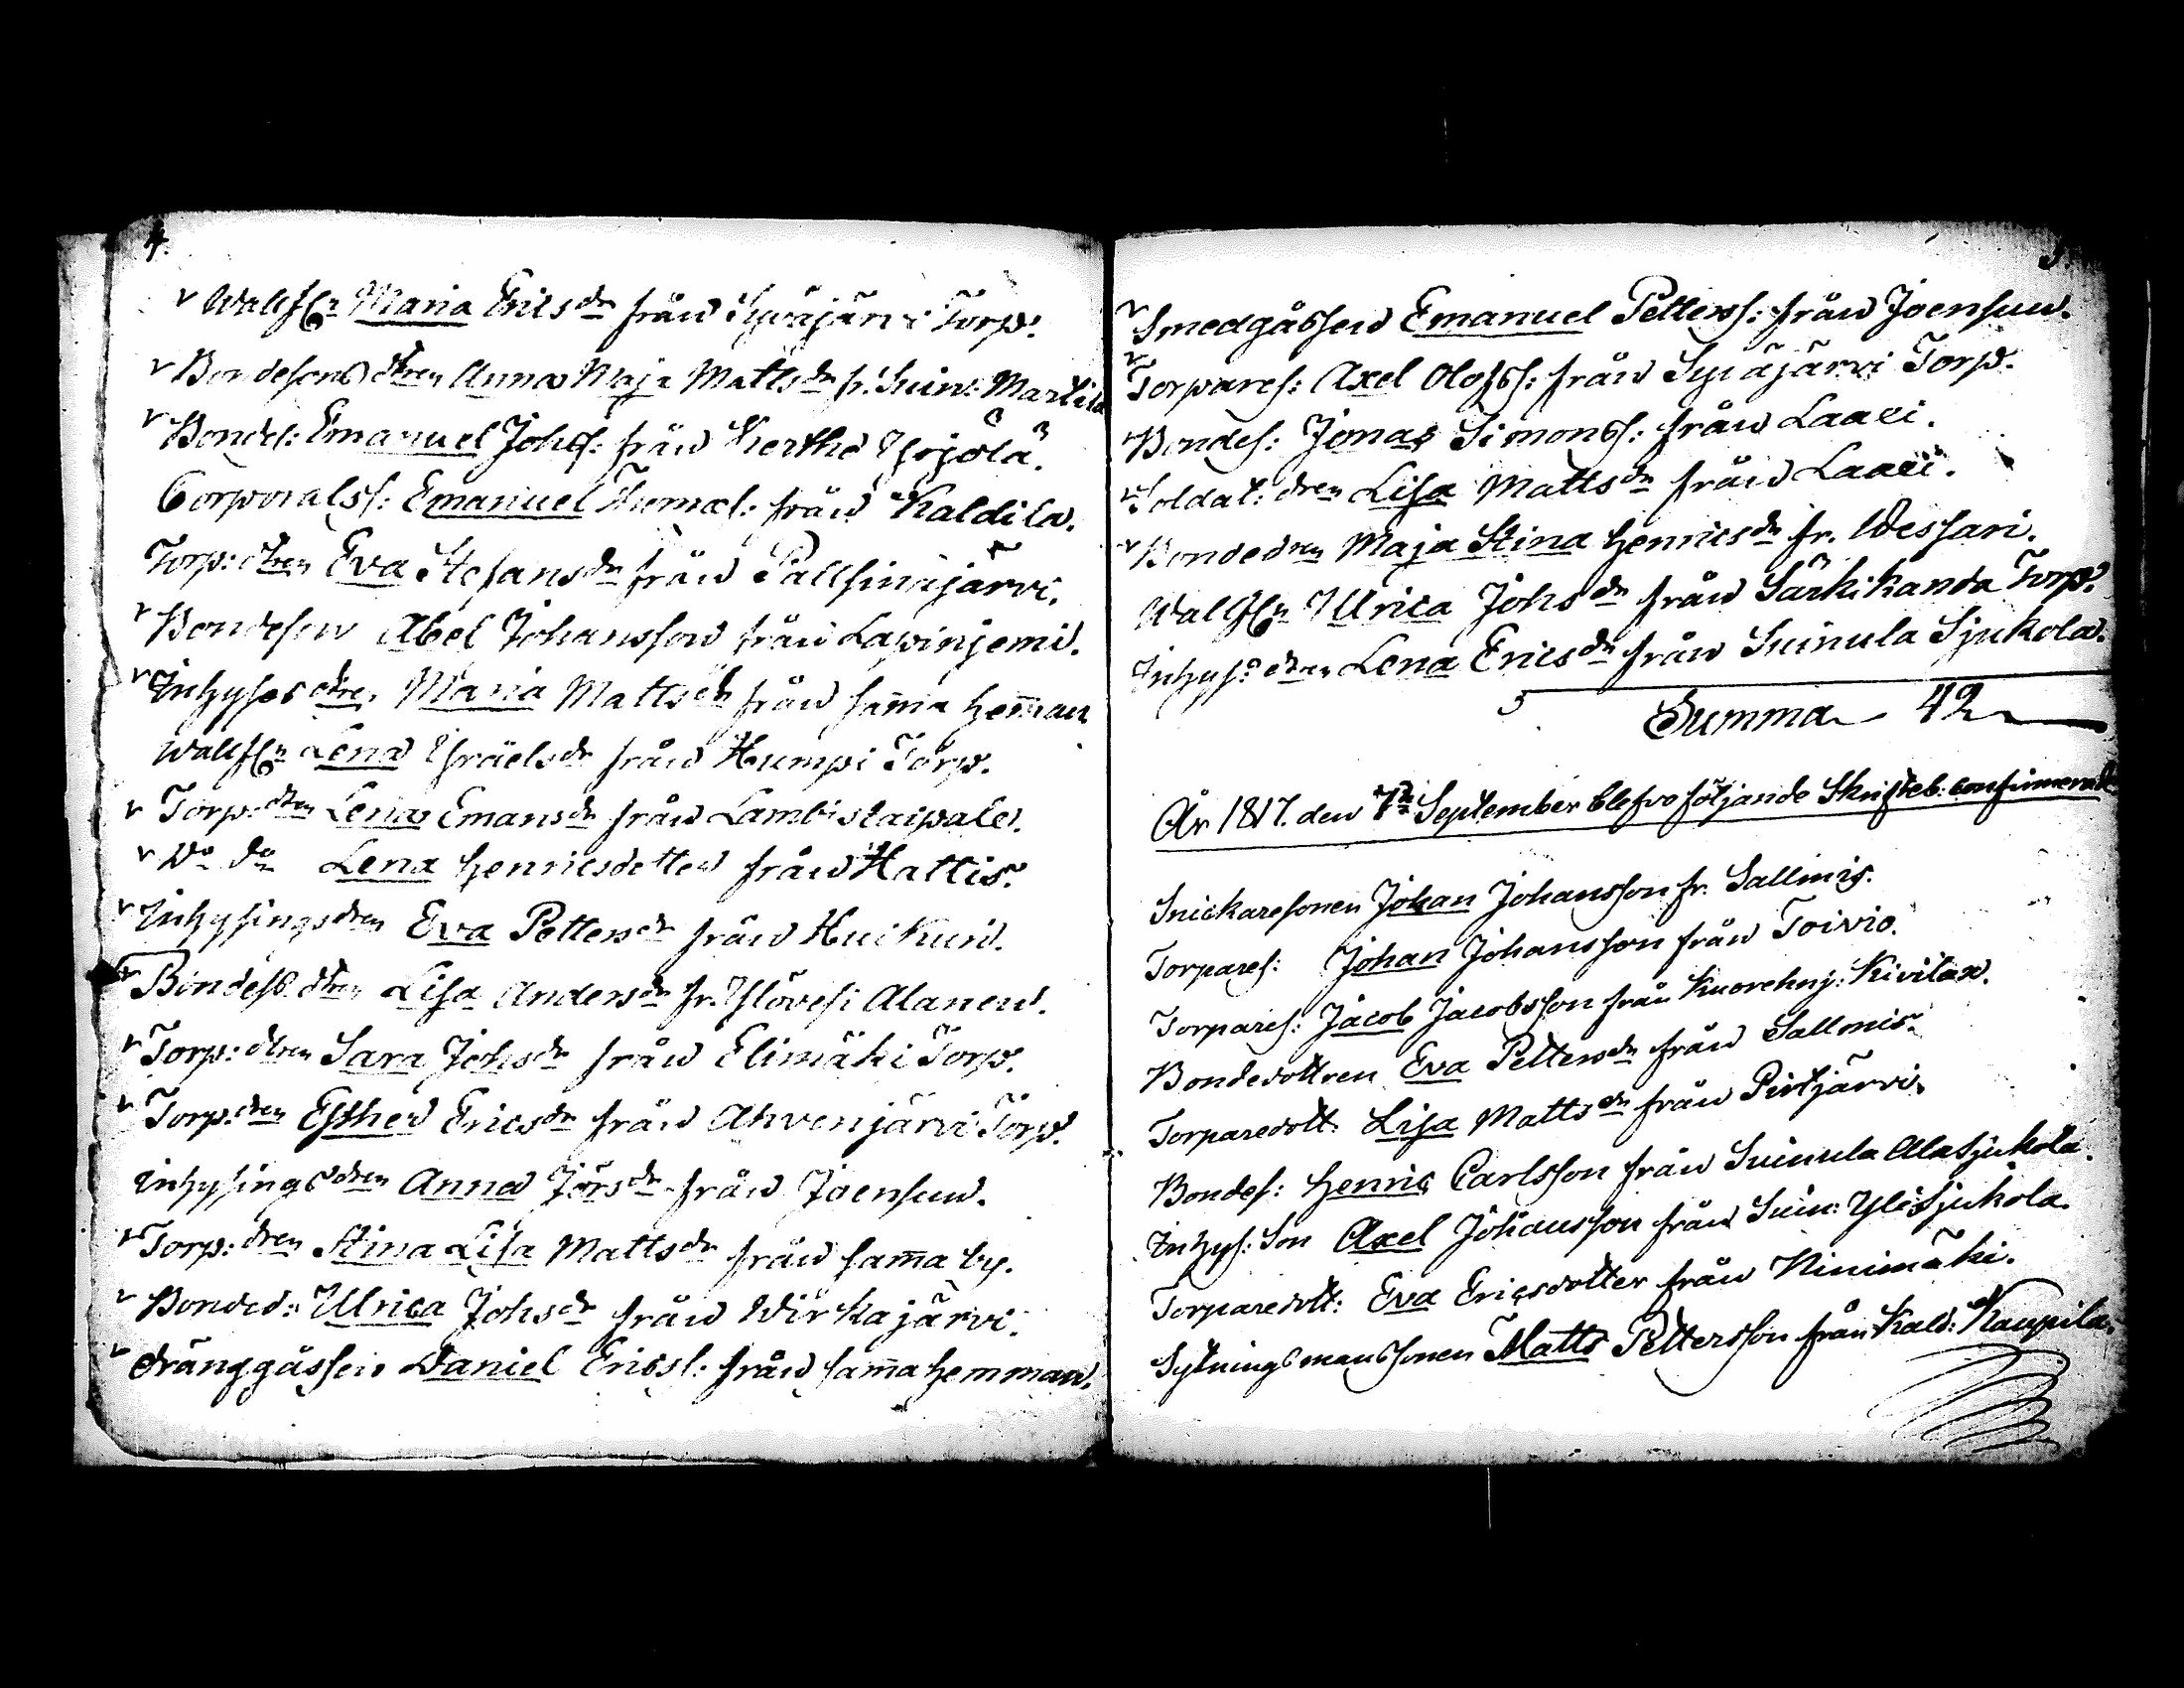 4.
Wallfl:n Maria Ericsdr från Syväjärvi Torp.
Bondesons dtren Anna Maja Mattsdr fr. Suin: Marttila
Bondes: Emanuel Johss: från Kertho Yrjölä.
Corporalss: Emanuel Thomæs: från Kaldila.
Torp: dtren Eva Stefansdr från Pallsinajärvi.
Bondeson Abel Johansson från Lapinjemi.
Inhyses dtren Maria Mattsdr från sam̄a hem̄an
Wallfl:n Lena Israelsdr från Humpi Torp.
Torp: dtren Lena Emansdr från Lambistaipale.
Do do Lena Henricsdotter från Hattis.
Inhysings dren Eva Pettersdr från Huikuri.
Bondes dtren Lisa Andersdr fr. Ylövesi Alanen.
Torp: dtren Sara Johsdr från Elimäki Torp.
Torp: dren Esther Ericsdr från Ahvenjärvi Torp.
Inhysings dren Anna Jörsdr från Joensuu.
Torp: dren Stina Lisa Mattsdr från sam̄a by.
Bonded: Ulrica Johsdr från Wirkajärvi.
Dränggåssen Daniel Ericss: från sam̄a hemman.
5.
Smedgåssen Emanuel Petterss: från Joensuu.
Torpares: Axel Olofss: från Syväjärvi Torp.
Bondes: Jonas Simonss: från Laaxi.
Soldat: dren Lisa Mattsdr från Laaxi.
Bondedren Maja Stina Henricsdr fr. Wessari.
Wallfl:n Ulrica Johsdr från Särkikanda Torp.
Inhys: dtren Lena Ericsdr från Suinula Sjukola.
Summa 42
År 1817. den 7de September blefvo följande Skrifteb: confirmerade
Snickaresonen Johan Johansson fr. Sallinis.
Torpares: Johan Johansson från Toivio.
Torpares: Jacob Jacobsson från Kuorehnj: Kivilax.
Bondedottren Eva Pettersdr från Sallonis.
Torparedott: Lisa Mattsdr från Pirtjärvi.
Bondes: Henric Carlsson från Suinula Alasjukola.
Inhys: Son Axel Johansson från Suin: Ylisjukola.
Torparedott: Eva Ericsdotter från Ninimäki.
Sytningsmanssonen Matts Pettersson från Kald: Kaupila.